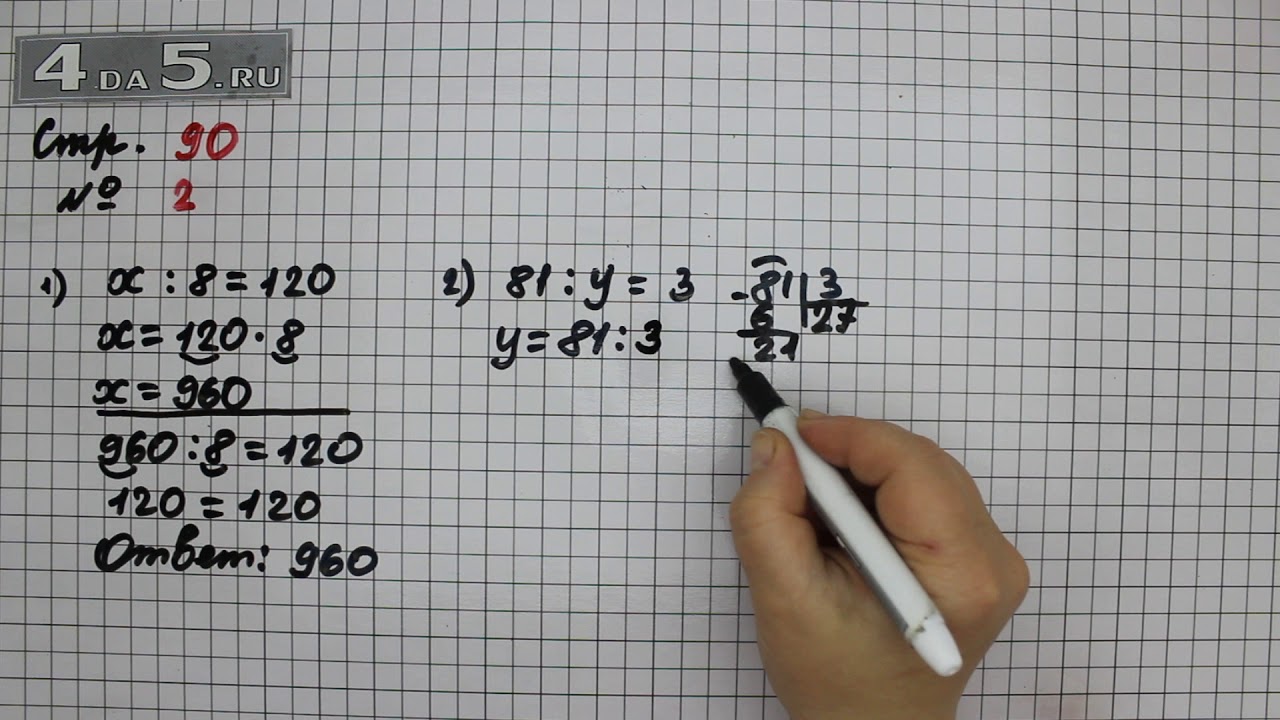 4DA5.RU
Стр. 90
№ 2
1) x : 8 = 120
x = 120 · 8
x = 960
960 : 8 = 120
120 = 120
Ответ: 960
2) 81 : y = 3
y = 81 : 3
- 81 | 3
6 | 27
21